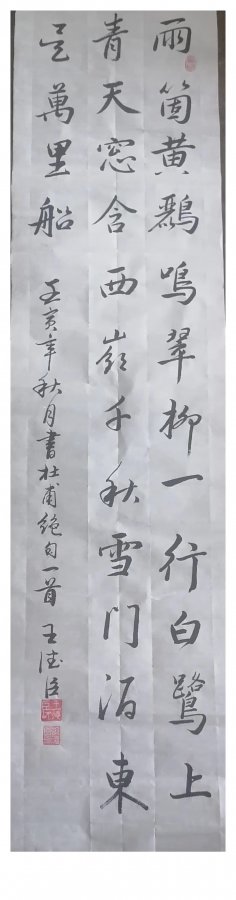 兩箇黄鸝鳴翠柳一行白鷺上
青天窓含西嶺千秋雪门泊東
吴萬里船
壬寅年秋月書杜甫絕句一首 王德臣